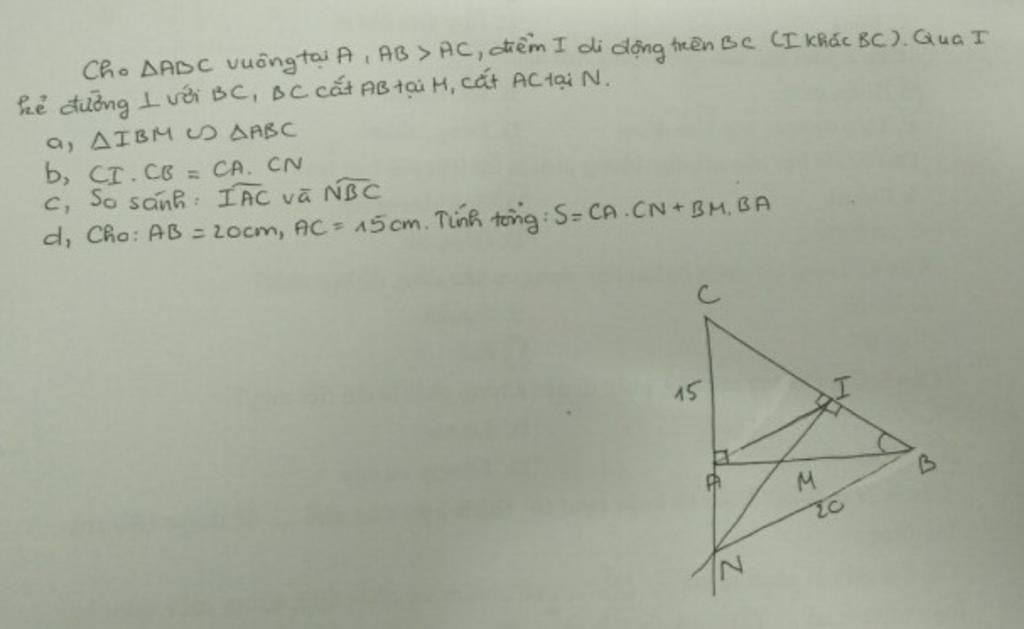 Cho ΔABC vuông tại A, AB > AC, điểm I di động trên BC (I khác BC). Qua I
kẻ đường ⊥ với BC, BC cắt AB tại M, cắt AC tại N.
a, ΔIBM ∽ ΔABC
b, CI. CB = CA. CN
c, So sánh: IAC và NBC
d, Cho: AB = 20cm, AC = 15cm. Tính tổng: S= CA.CN + BM.BA
C
15
I
A
M
B
20
N